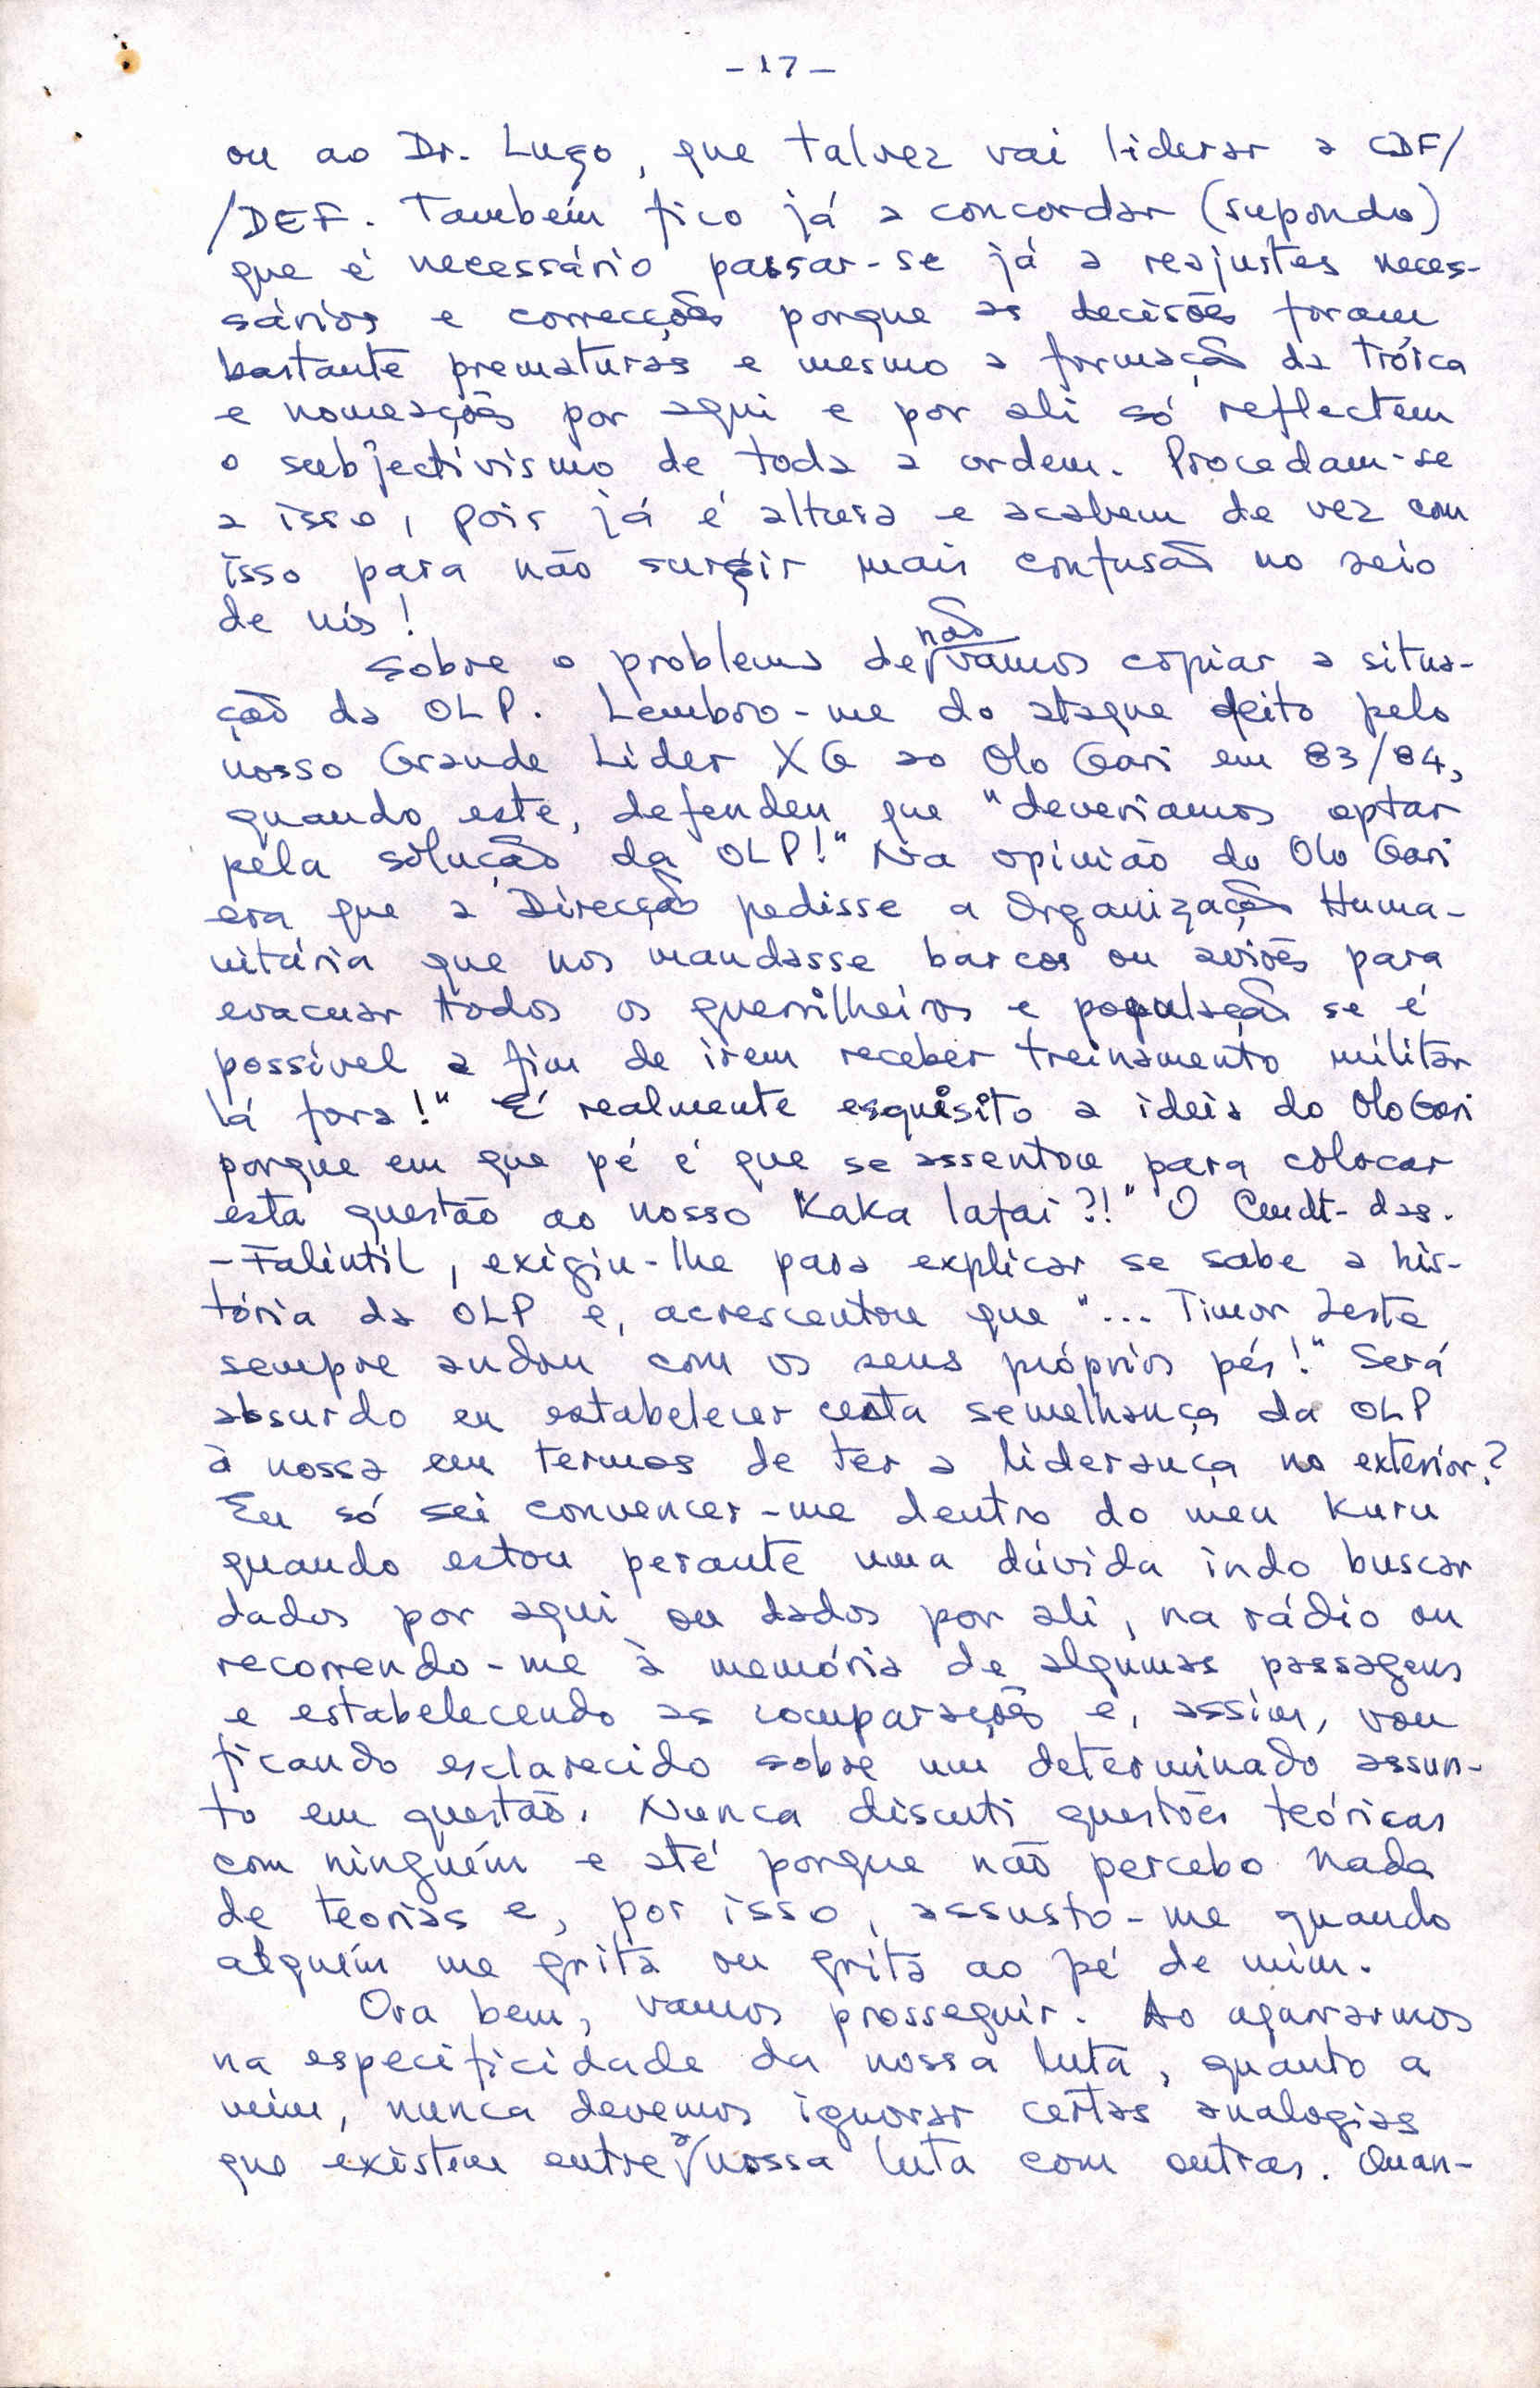 - 17 -
ou ao Dr. Lugo, que talvez vai liderar a CDF/
/DEF. Também fico já a concordar (supondo)
que é necessário passar-se já a reajustes neces-
sários e correcções porque as decisões foram
bastante prematuras e mesmo a formação da Tróica
e nomeações por aqui e por ali só reflectem
o subjectivismo de toda a ordem. Procedam-se
a isso, pois já é altura e acabem de vez com
isso para não surgir mais confusão no seio
de nós!
Sobre o problema de não vamos copiar a situa-
ção da OLP. Lembro-me do ataque feito pelo
nosso Grande Lider XG ao Olo Gari em 83/84,
quando este, defendeu que "deveriamos optar
pela solução da OLP!" Na opinião do Olo Gari
era que a Direcção pedisse a Organização Huma-
nitária que nos mandasse barcos ou aviões para
evacuar todos os guerrilheiros e população se é
possível a fim de irem receber treinamento militar
lá fora!" É realmente esquisito a ideia do Olo Gari
porque em que pé é que se assentou para colocar
esta questão ao nosso "Kaka lafai?!" O Cmdt- das.
- Falintil, exigiu-lhe para explicar se sabe a his-
tória da OLP e, acrescentou que "... Timor Leste
sempre andou com os seus próprios pés!" Será
absurdo eu estabelecer certa semelhança da OLP
à nossa em termos de ter a liderança no exterior?
Eu só sei convencer-me dentro do meu Kuru
quando estou perante uma dúvida indo buscar
dados por aqui ou dados por ali, na rádio ou
recorrendo-me à memória de algumas passagens
e estabelecendo as comparações e, assim, vou
ficando esclarecido sobre um determinado assun-
to em questão. Nunca discuti questões teóricas
com ninguém e até porque não percebo nada
de teorias e, por isso, assusto-me quando
alguém me grita ou grita ao pé de mim.
Ora bem, vamos prosseguir. Ao agarrarmos
na especificidade da nossa luta, quanto a
mim, nunca devemos ignorar certas analogias
que existem entre a nossa luta com outras. Quan-